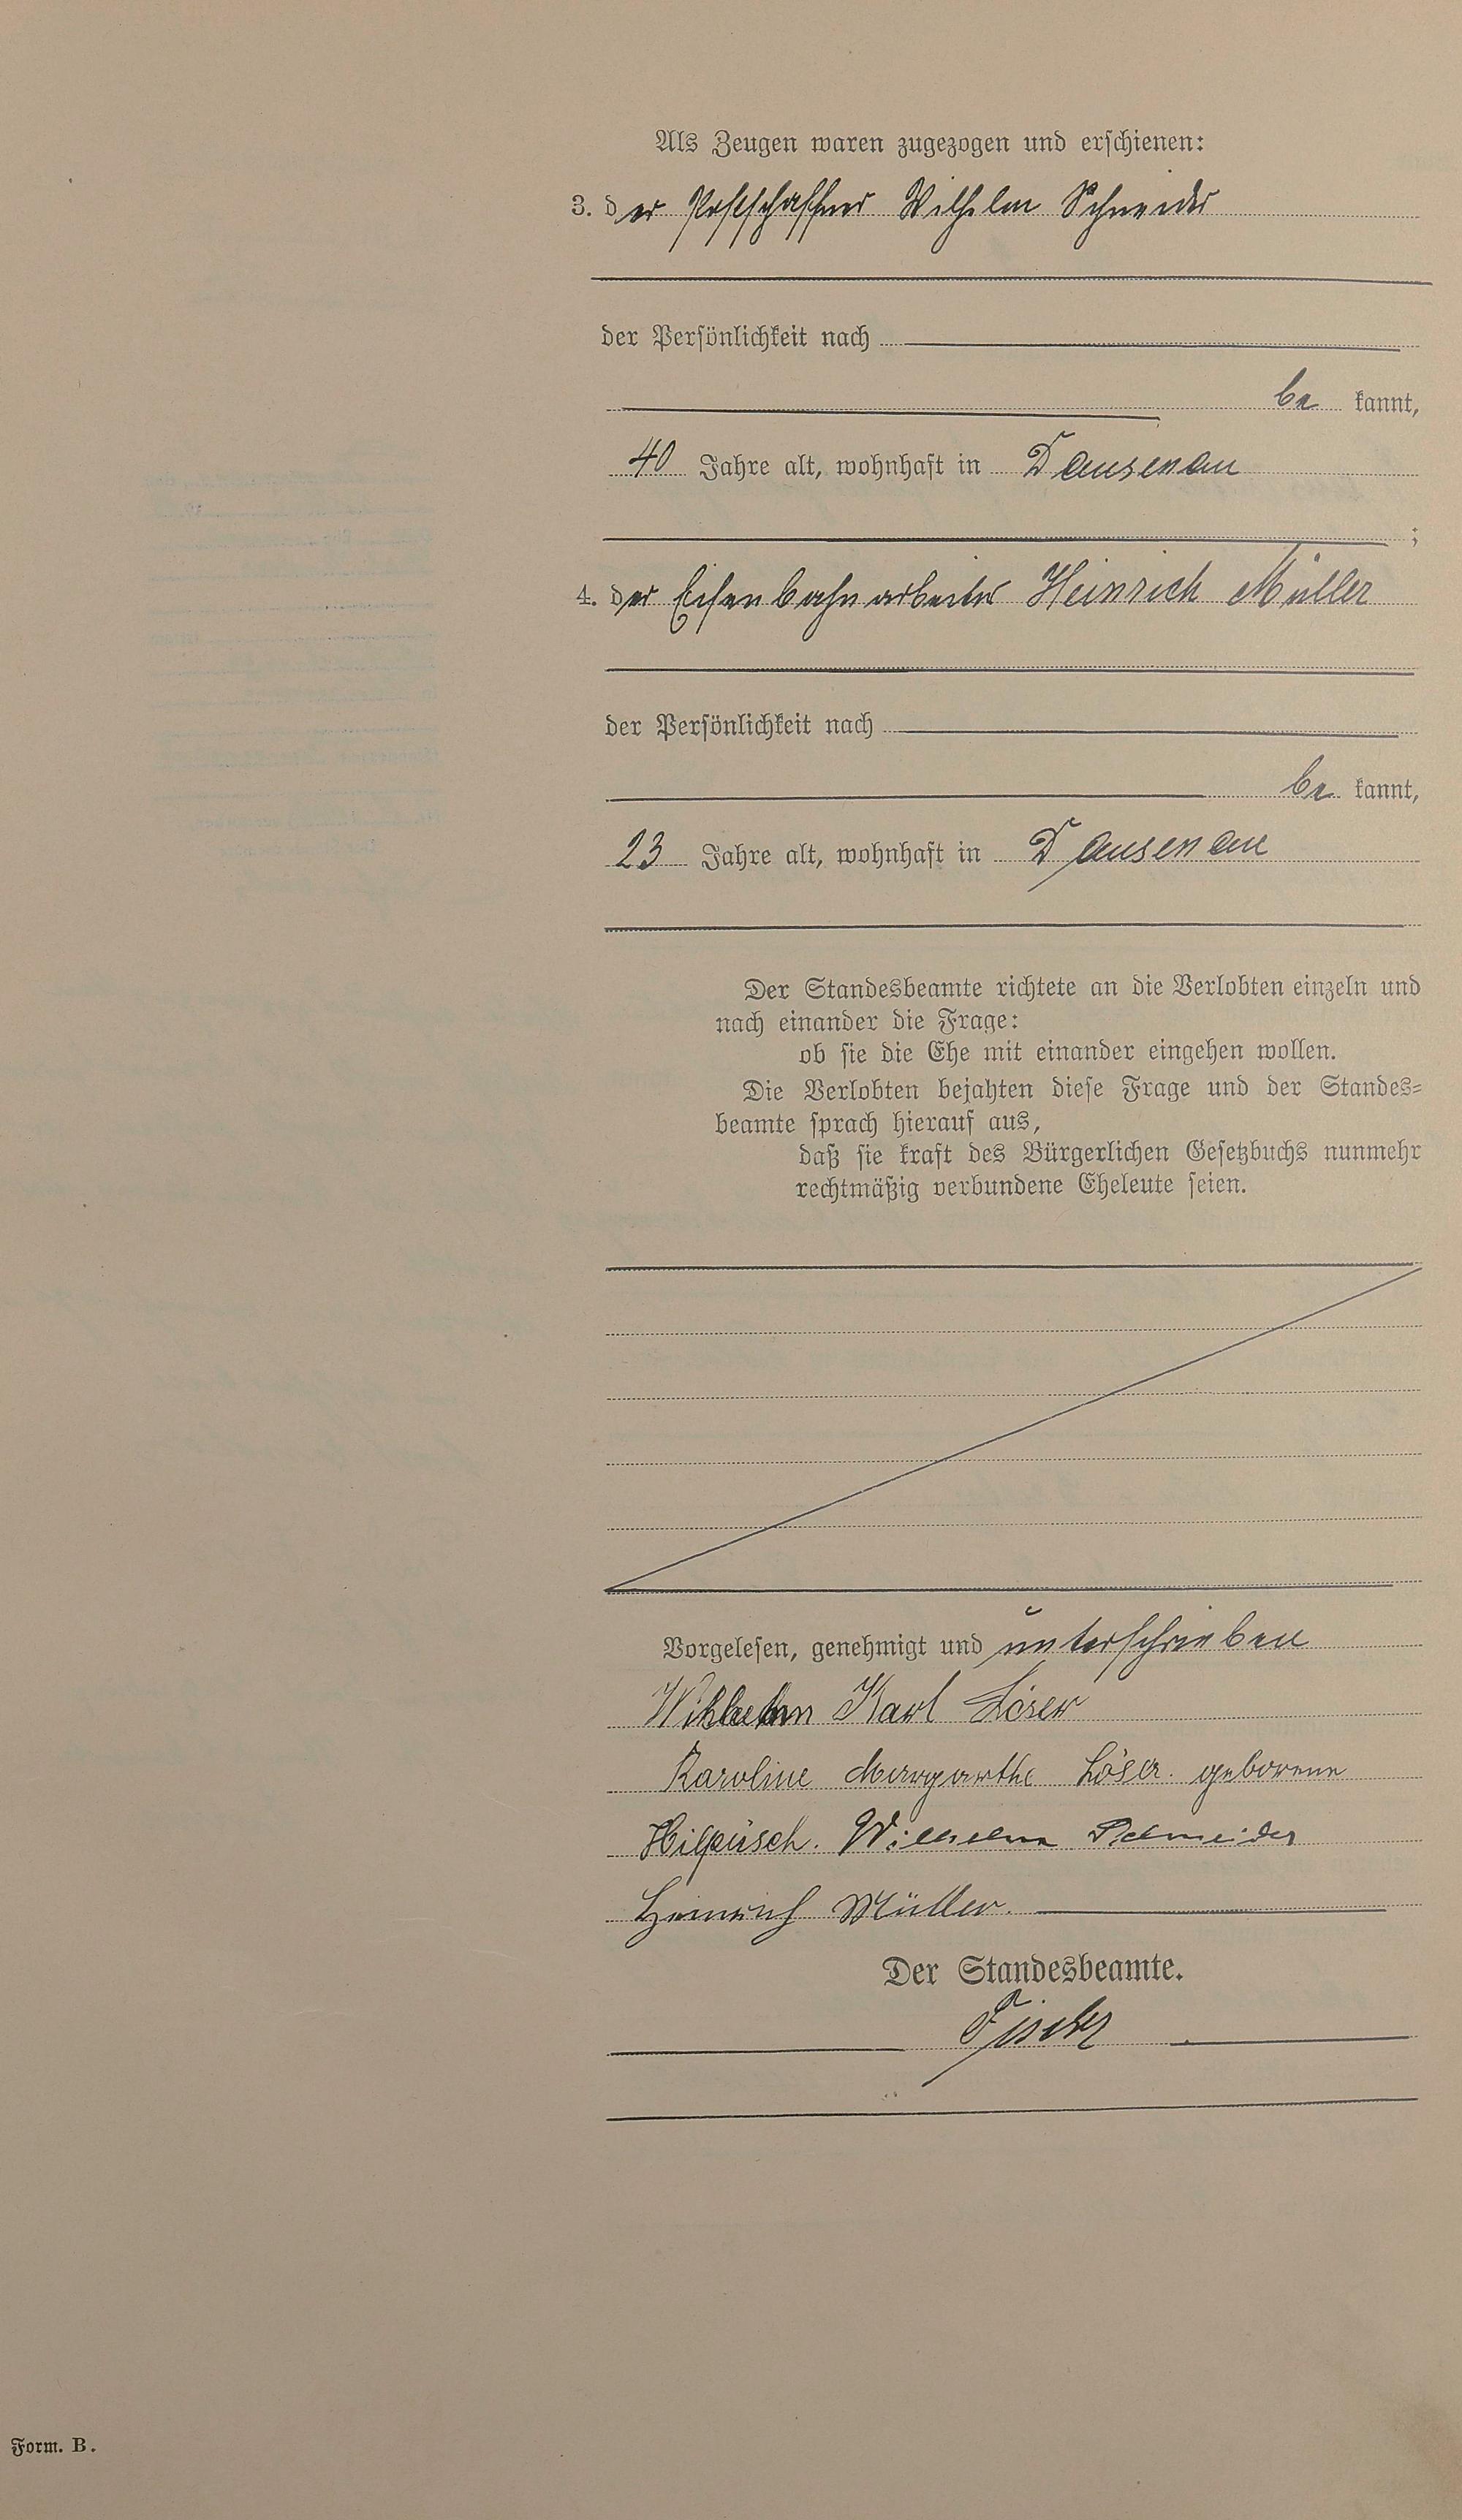 Als Zeugen waren zugezogen und erschienen:
3. der Postschaffner Wilhelm Schneider
der Persönlichkeit nach
be kannt,
40 Jahre alt, wohnhaft in Dausenau
;
4. der Eisenbahnarbeiter Heinrich Müller
der Persönlichkeit nach
be kannt,
23 Jahre alt, wohnhaft in Dausenau
Der Standesbeamte richtete an die Verlobten einzeln und
nach einander die Frage:
ob sie die Ehe mit einander eingehen wollen.
Die Verlobten bejahten diese Frage und der Standes-
beamte sprach hierauf aus,
daß sie kraft des Bürgerlichen Gesetzbuchs nunmehr
rechtmäßig verbundene Eheleute seien.
Vorgelesen, genehmigt und unterschrieben
Wilhelm Karl Löser
Karoline Margarthe Löser. geborene
Hilpüsch. Wilhelm Schneider
Heinrich Müller.
Der Standesbeamte.
Form. B.